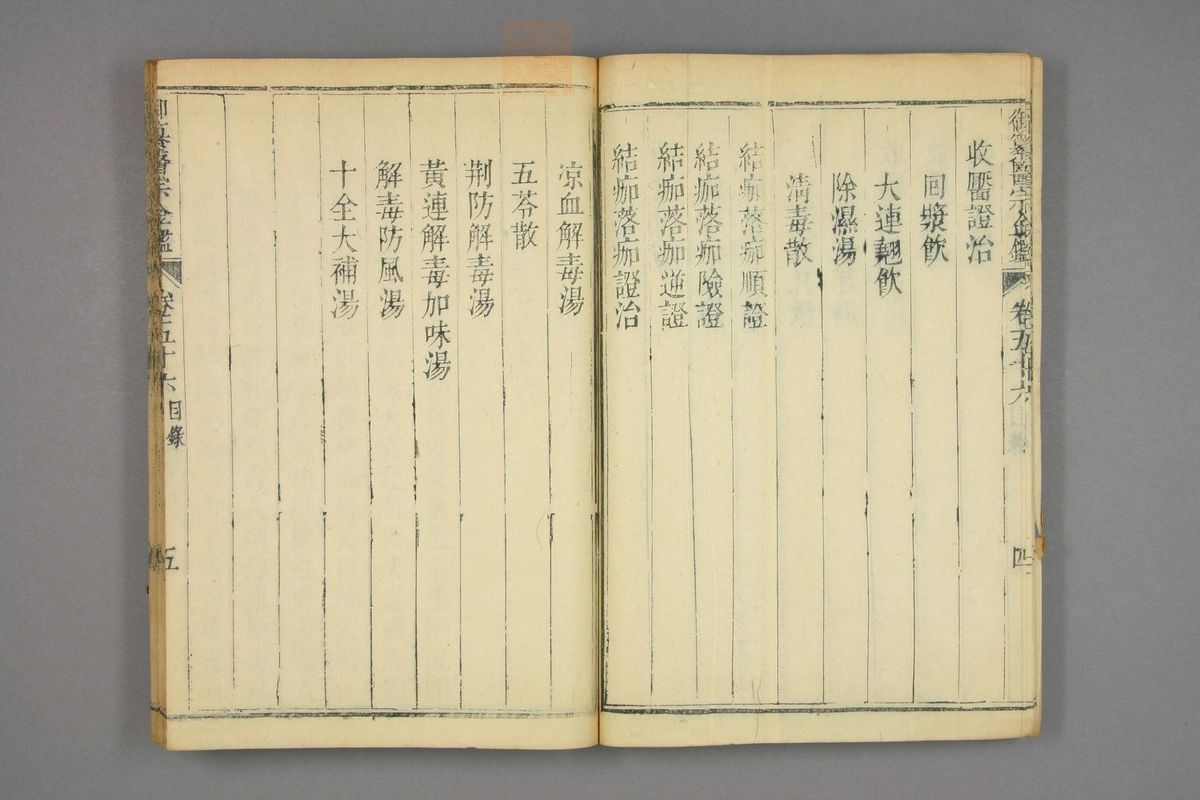 御纂醫宗金鑑 卷五十六 目錄 四
收靨證治
回漿飲
大連翹飲
除濕湯
清毒散
結痂落痂順證
結痂落痂險證
結痂落痂逆證
結痂落痂證治
凉血解毒湯
五苓散
荆防解毒湯
黃連解毒加味湯
解毒防風湯
十全大補湯
御纂醫宗金鑑 卷五十六 目錄 五